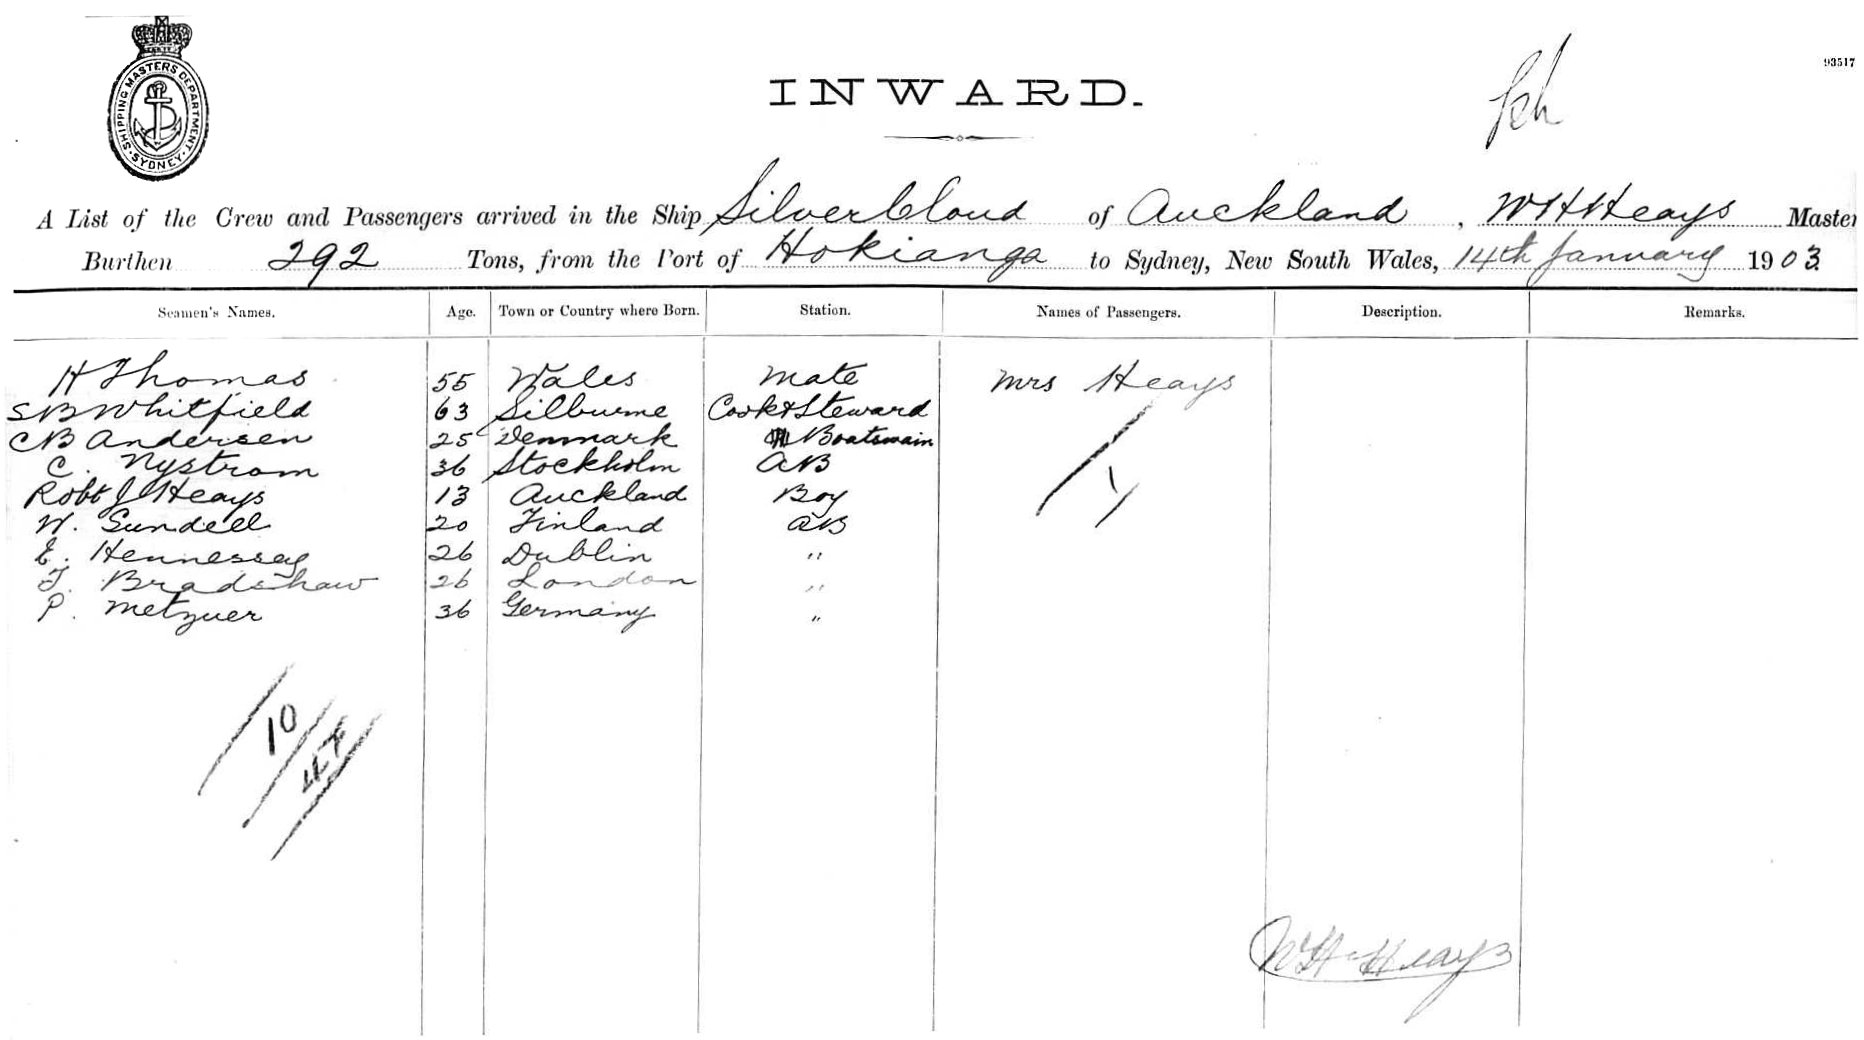 SHIPPING MASTERS DEPARTMENT. SYDNEY.
93517
INWARD.
A List of the Crew and Passengers arrived in the Ship Silver Cloud of Auckland, W H Heays Master
Burthen 292 Tons, from the Port of Hokianga to Sydney, New South Wales, 14th January 1903
Seamen's Names. Age. Town or Country where Born. Station. Names of Passengers. Description. Remarks.
H Thomas 55 Wales Mate Mrs Heays
S B Whitfield 63 Silburne Cook & Steward
C B Andersen 25 Denmark Boatswain
C. Nystrom 36 Stockholm AB
Robt J Heays 13 Auckland Boy
W. Sundell 20 Finland AB
E. Hennessey 26 Dublin "
T. Bradshaw 26 London "
P. Metzuer 36 Germany "
1
10
W H Heays